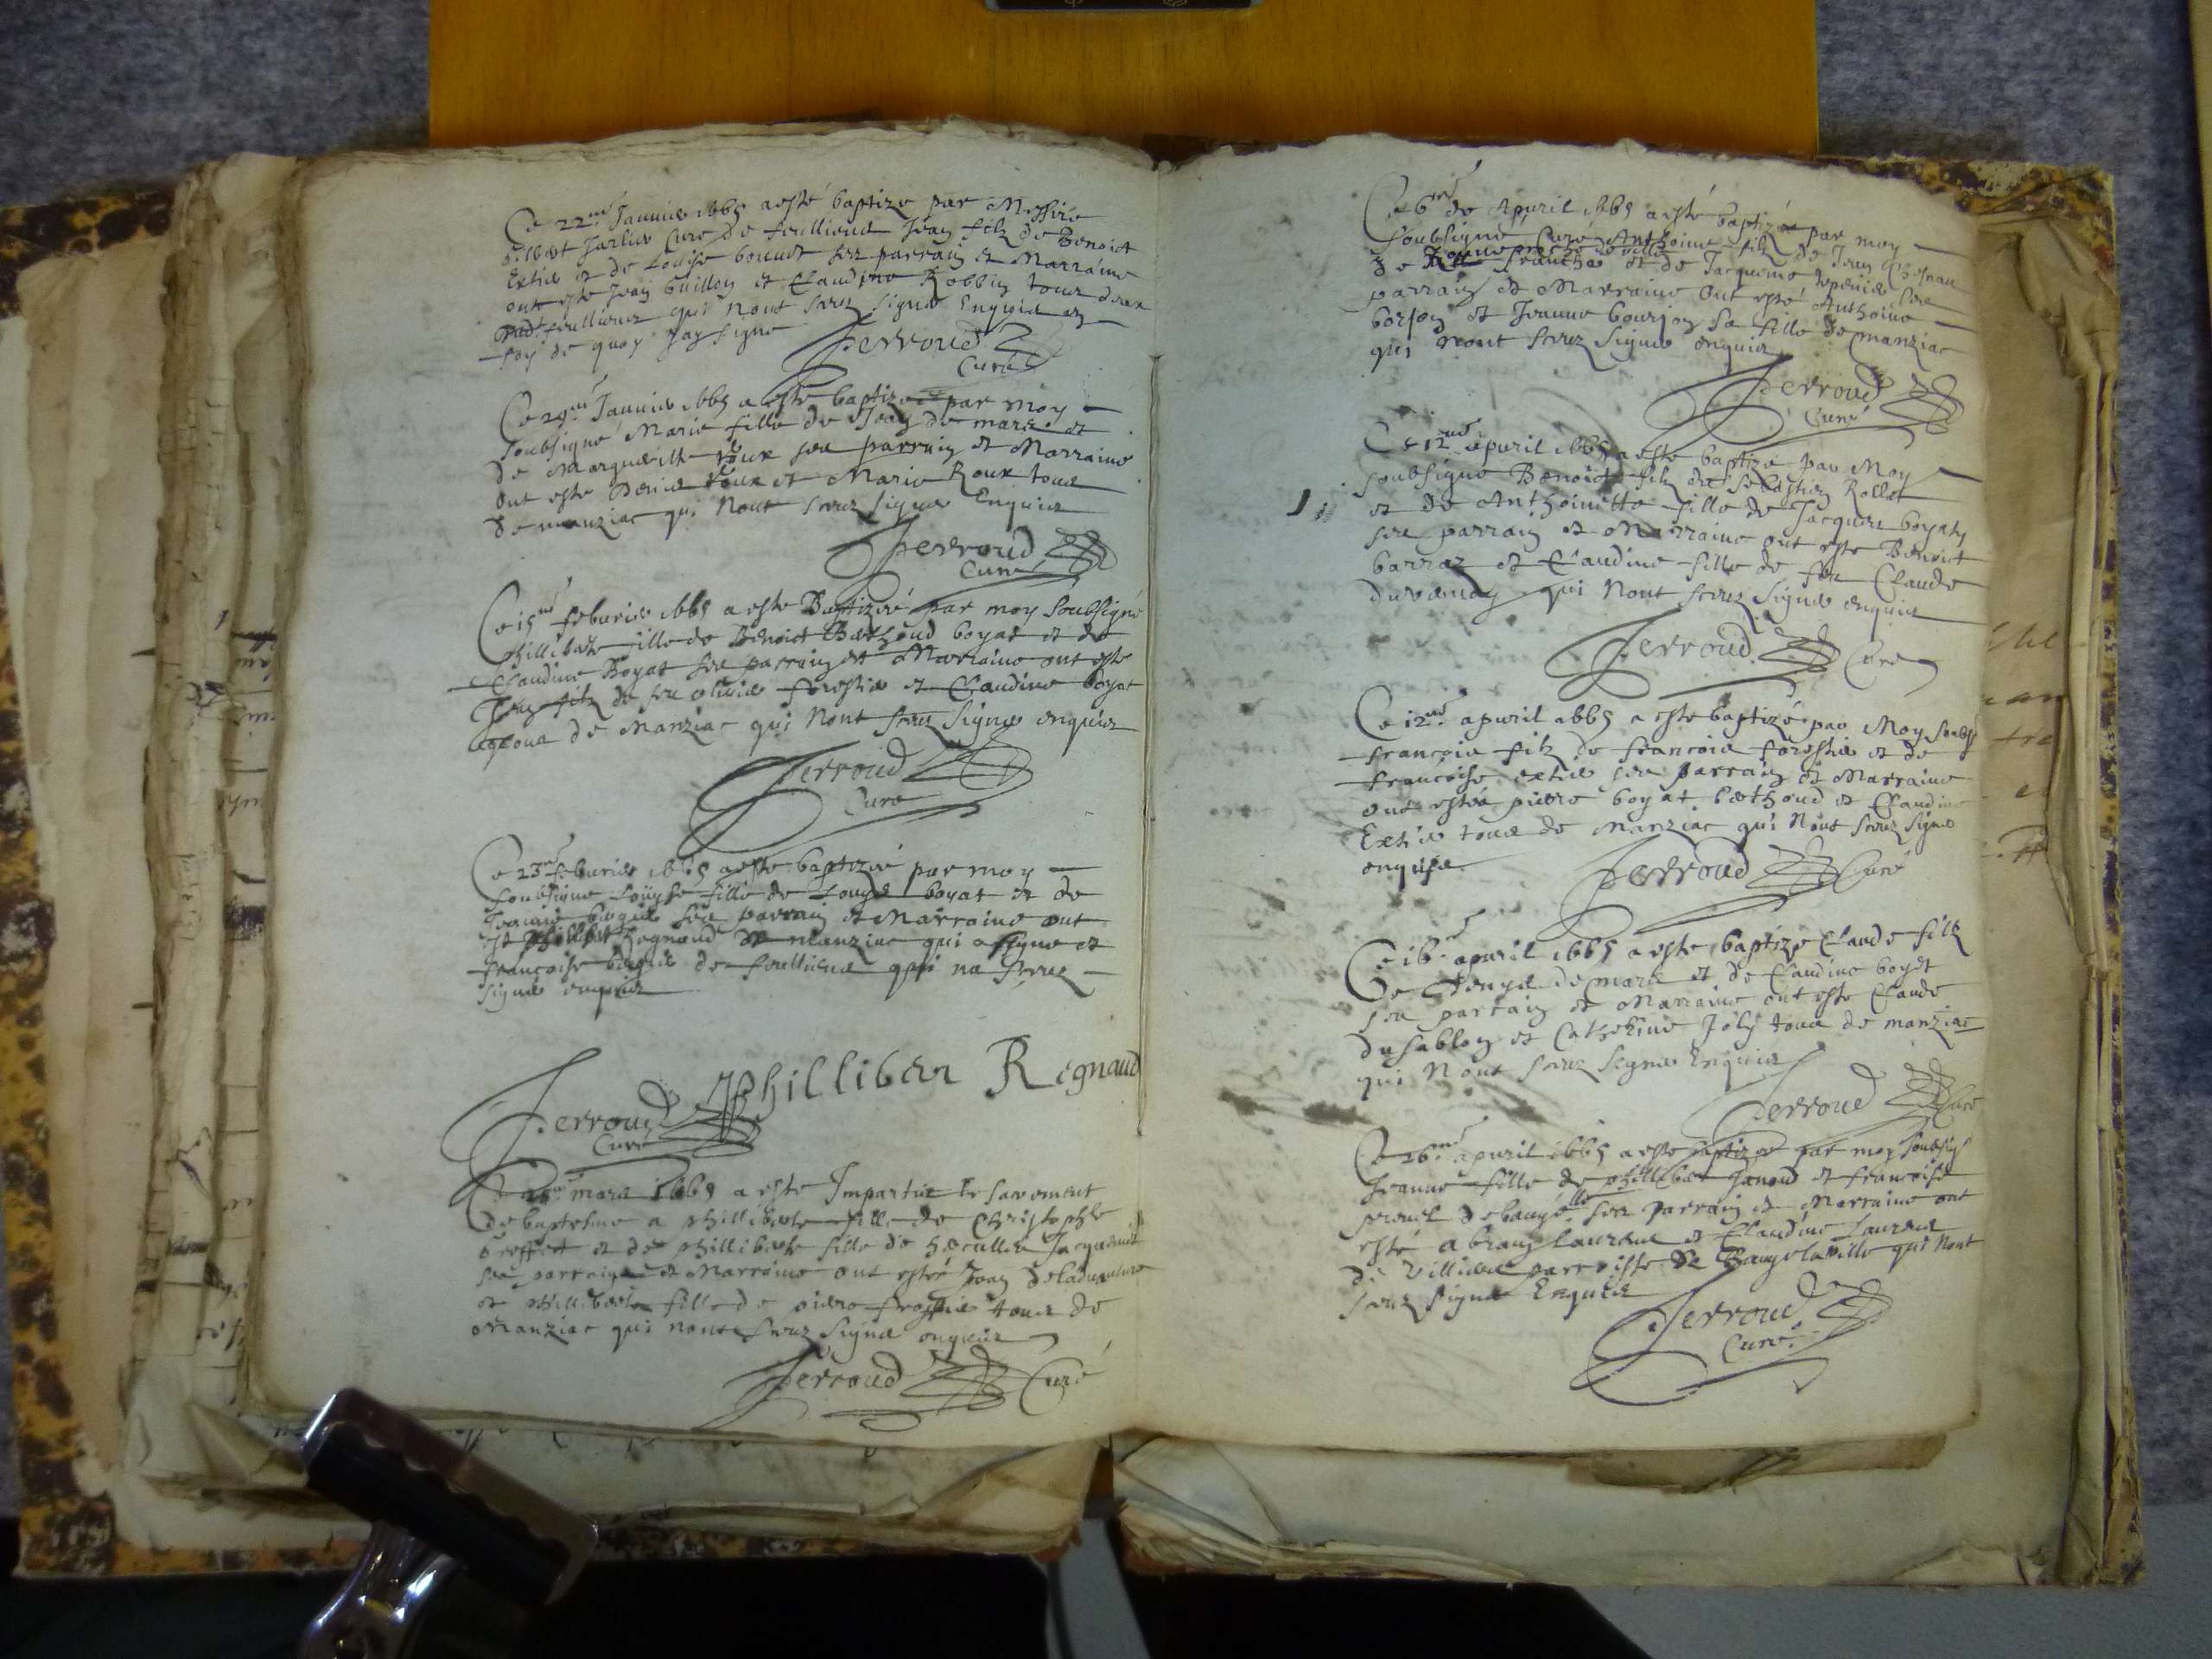 Ce 22me Januier 1665 a esté baptize par Messire
Curé de feullienes Jean filz de Benoict
Extier et de Louise ses parrain et Marraine
ont este Jean Guillon et Claudine Robbin tous deux
dud. feulliens qui Nont sceuz signer Enquis en
foy de quoy Jay signe
Perroud
Curé
Ce 29me Januier 1665 a esté baptizée par moy
soubsigné Marie fille de Jean de mars et
de Marguerite roux ses parrain et Marraine
Ont este Denis roux et Marie Roux tous
de manziac qui Nont sceuz signer Enquis
Perroud
Curé
Ce 15me feburier 1665 a este Baptizée par moy soubsigné
phillibte fille de Benoict Berthoud boyat et de
Claudine Boyat ses parrain et Marraine ont este
Jean filz de feu forestier et Claudine boyat
tous de Manziac qui Nont sceu signer enquis
Perroud
Cure
Ce 23me feburier 1665 a este baptizée par moy
soubsigne Louyse fille de Louys boyat et de
ses parrain et Marraine ont
Regnaud de manziac qui a signe et
francoise de feulliens qui na sceu
signer enquis
Philliber Regnaud
Perroud
Curé
Ce mars 1665 a este Impartie le sacrement
de baptesme a philliberte fille de Christophle
et de phillberte fille de
ses parrain et Marraine ont esté Jean
et phillberte fille de piere tous de
Manziac qui nont sceuz signer enquis
Perroud Curé
Ce 6me de Apuril 1665 a esté baptizé par moy
soubsigné Curé Anthoine filz de Jean
de et de Jacqueme ses
parrain et Marraine Ont esté Anthoine
borjon et Jeanne bourjon sa fille de manziac
qui nont sceuz signer enquis
Perroud
Curé
Ce 12me apuril 1665 a esté baptizé par Moy
soubsigne Benoict filz de Sebastien Rollet
et de Anthoinette fille de Jacques
ses parrain et Marraine ont este Benoict
barraz et Claudine fille de feu Claude
qui Nont sceuz signer enquis
Perroud Cure
Ce 12me apuril 1665 a este baptizé par Moy soubs
francois filz de francois forestier et de
francoise extier ses parrain et Marraine
ont estés piere boyat berthoud et Claudine
Extier tous de manziac qui Nont sceuz signer
enquis
Perroud Curé
Ce 16e apuril 1665 a este baptize Claude filz
de Denys de mars et de Claudine boyat
ses parrain et Marraine ont este Claude
du sablon et Catherine Joly tous de manziac
qui Nont sceuz signer Enquis
Perroud Curé
Ce 26me apuril 1665 a este baptizee par moy soubsig
Jeanne fille de phillibert Janoud et francoise
ses parrain et Marraine ont
esté Laurens et Claudine Laurens
de parroisse de Baugé la ville qui Nont
sceuz signer Enquis
Perroud
Curé